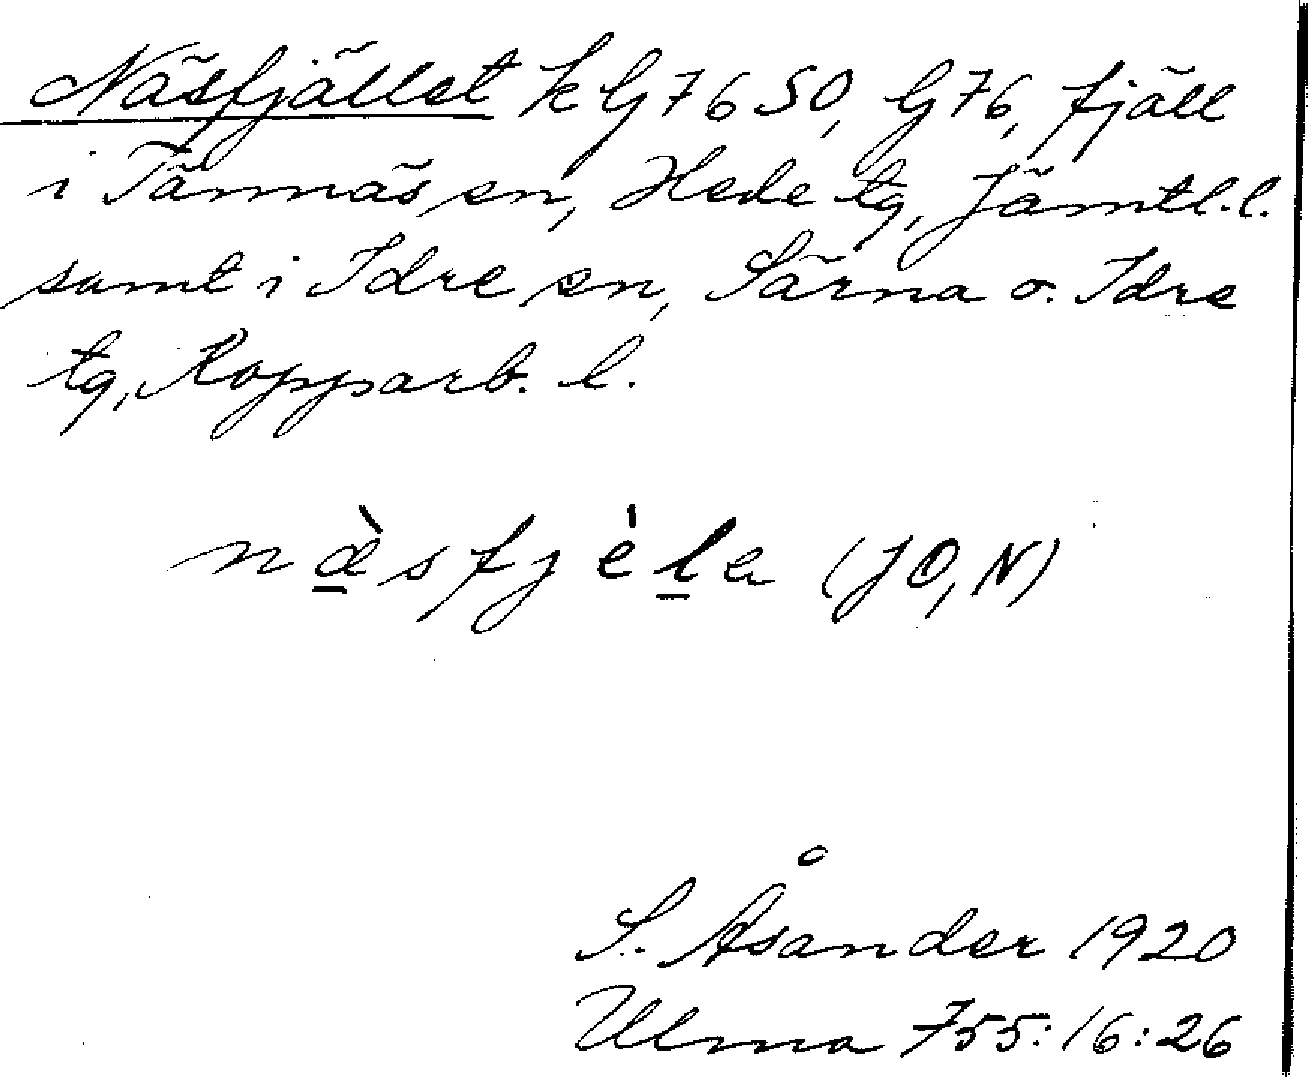 Näsfjället k G 76 SO, G 76, fjäll
i Tännäs sn, Hede tg, Jämtl. l.
samt i Idre sn, Särna o. Idre
tg, Kopparb. l.
næ̱̀sfjèḻa (JO, N)
S. Åsander 1920
Ulma 755:16:26